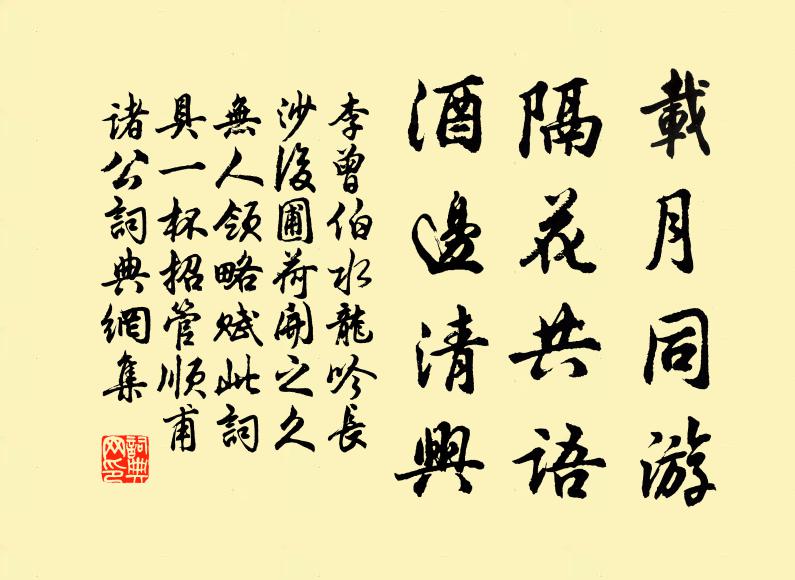 載月同游
隔花共語
酒邊清興
李曾伯水龍吟長
沙後圃荷開之久
無人領略賦此詞
具一杯招管順甫
諸公詞典網集
詞典网印